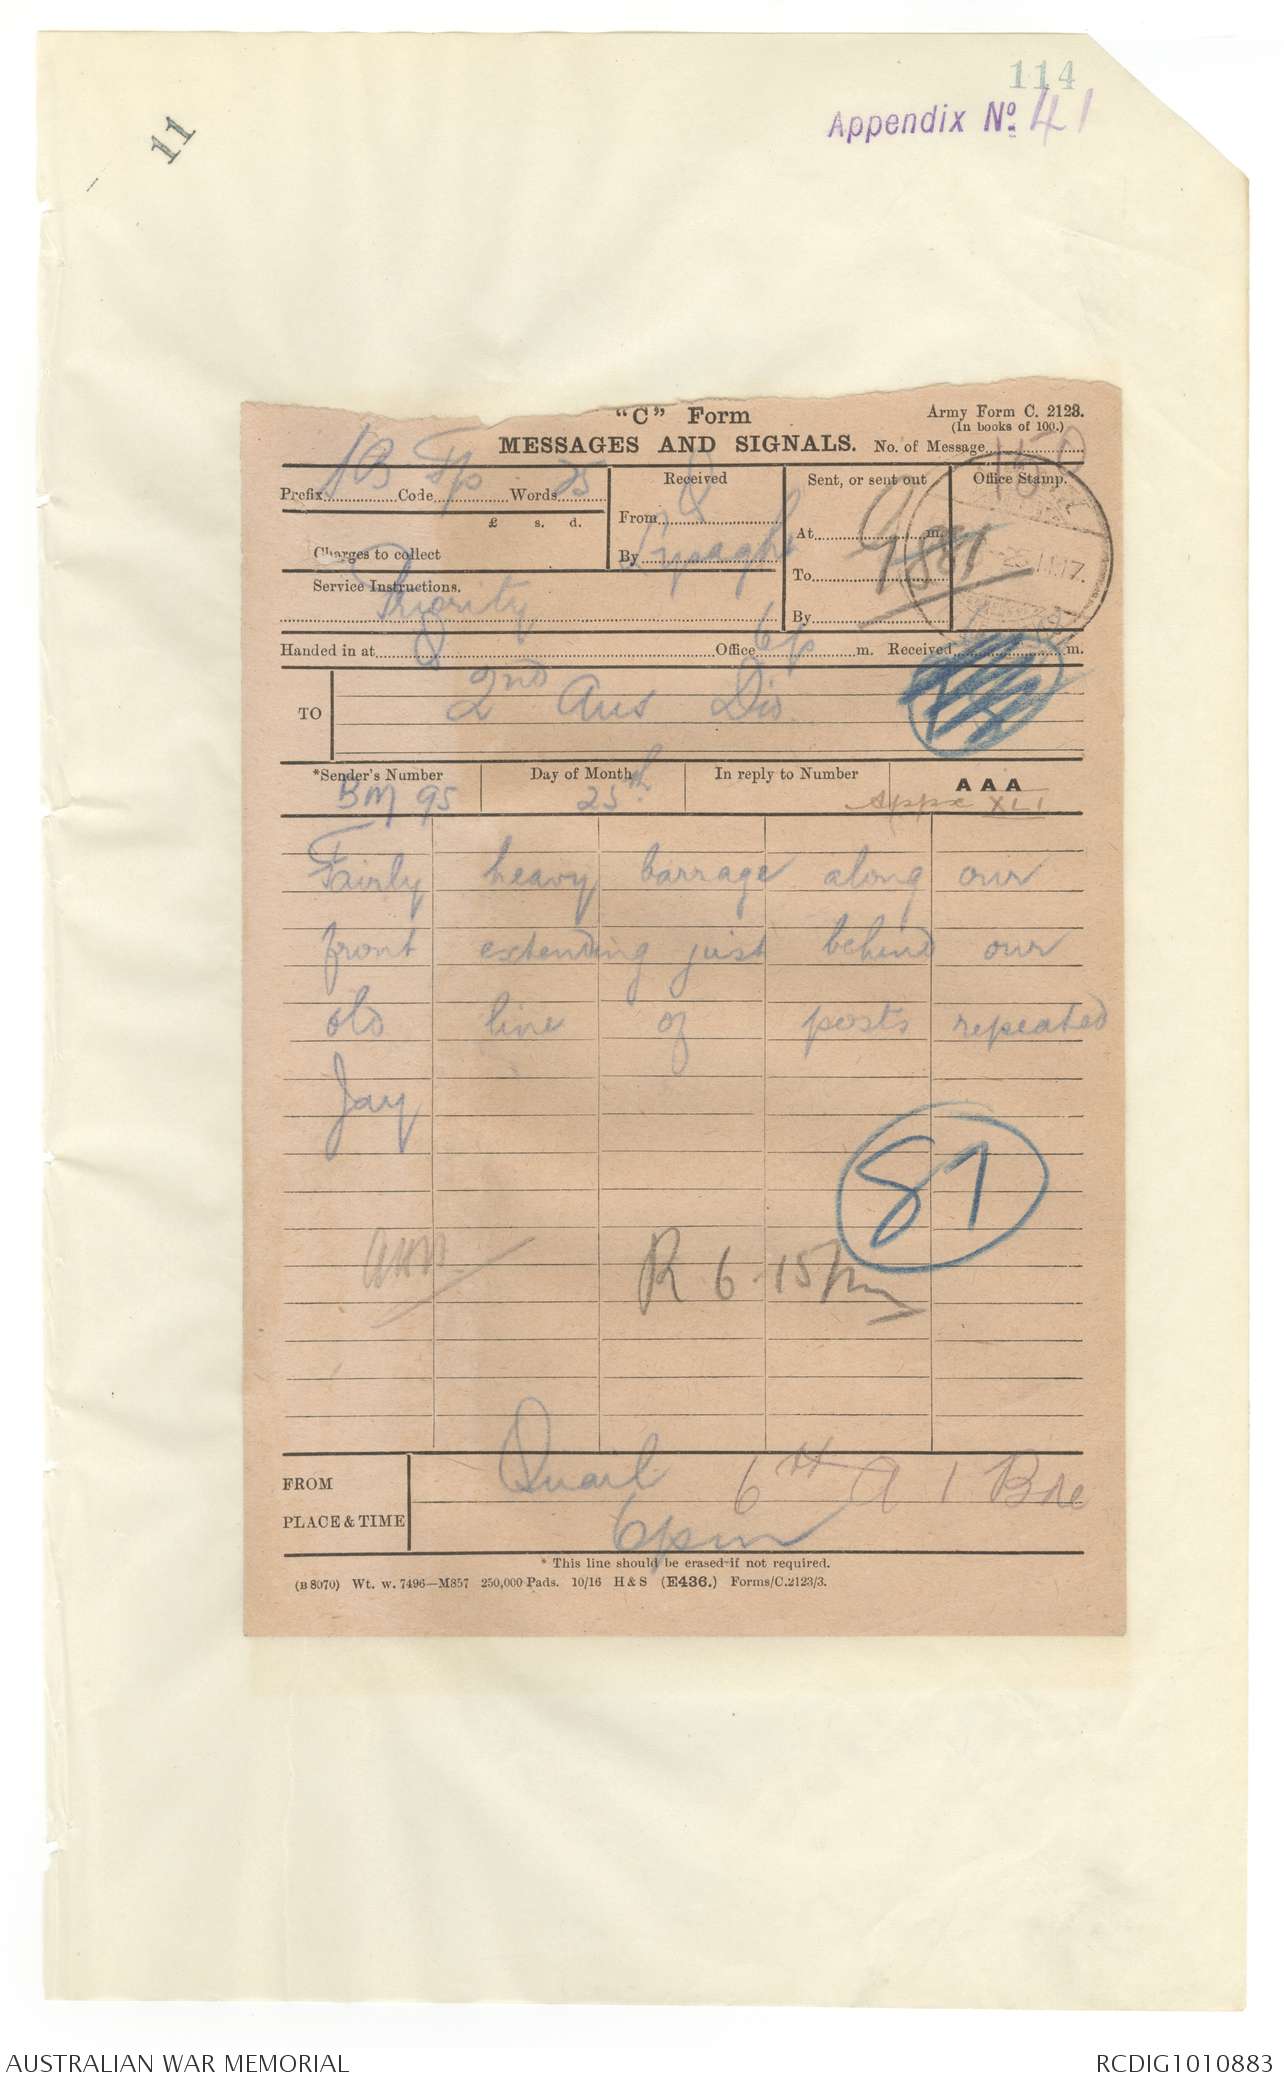 114
Appendix No. 41
11
"C" Form
Army Form C. 2123.
(In books of 100.)
MESSAGES AND SIGNALS.
No. of Message
Prefix SB Code Fp Words 25
£ s. d.
Charges to collect
Service Instructions.
Priority
Received
From Q
By
Sent, or sent out
At m.
To
By
Office Stamp.
Handed in at Q Office 6p m. Received m.
TO 2nd Aus Div
*Sender's Number
BM 95
Day of Month
25th
In reply to Number
AAA
Appx XLI
Fairly heavy barrage along our
front extending just behind our
old line of posts repeated
Jay
87
R 6.15pm
FROM Quail 6th A I Bde
PLACE & TIME 6pm
* This line should be erased if not required.
(B 8070) Wt. w. 7496—M857 250,000 Pads. 10/16 H & S (E436.) Forms/C.2123/3.
AUSTRALIAN WAR MEMORIAL
RCDIG1010883